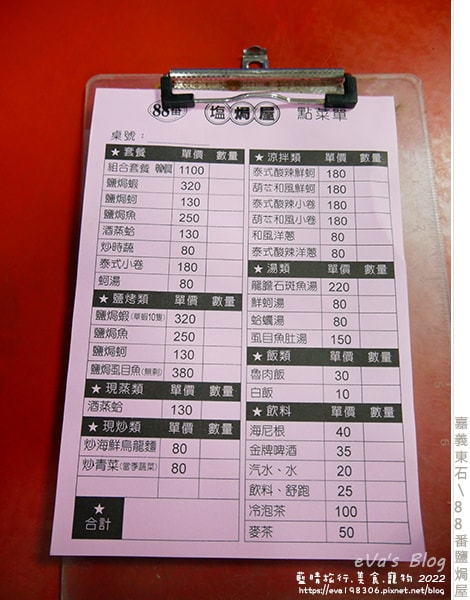 88番 塩焗屋 點菜單
桌號：
★ 套餐 單價 數量
組合套餐 特價 1100
鹽焗蝦 320
鹽焗蚵 130
鹽焗魚 250
酒蒸蛤 130
炒時蔬 80
泰式小卷 180
蚵湯 80
★ 鹽烤類 單價 數量
鹽焗蝦(草蝦10隻) 320
鹽焗魚 250
鹽焗蚵 130
鹽焗虱目魚(無刺) 380
★ 現蒸類 單價 數量
酒蒸蛤 130
★ 現炒類 單價 數量
炒海鮮烏龍麵 80
炒青菜(當季蔬菜) 80
★ 合計
★ 涼拌類 單價 數量
泰式酸辣鮮蚵 180
葫芯和風鮮蚵 180
泰式酸辣小卷 180
葫芯和風小卷 180
和風洋蔥 80
泰式酸辣洋蔥 80
★ 湯類 單價 數量
龍膽石斑魚湯 220
鮮蚵湯 80
蛤蠣湯 80
虱目魚肚湯 150
★ 飯類 單價 數量
魯肉飯 30
白飯 10
★ 飲料 單價 數量
海尼根 40
金牌啤酒 35
汽水、水 20
飲料、舒跑 25
冷泡茶 100
麥茶 50
嘉義東石\88番鹽焗屋
eVa's Blog
藍晴旅行.美食.寵物 2022
https://eva198306.pixnet.net/blog